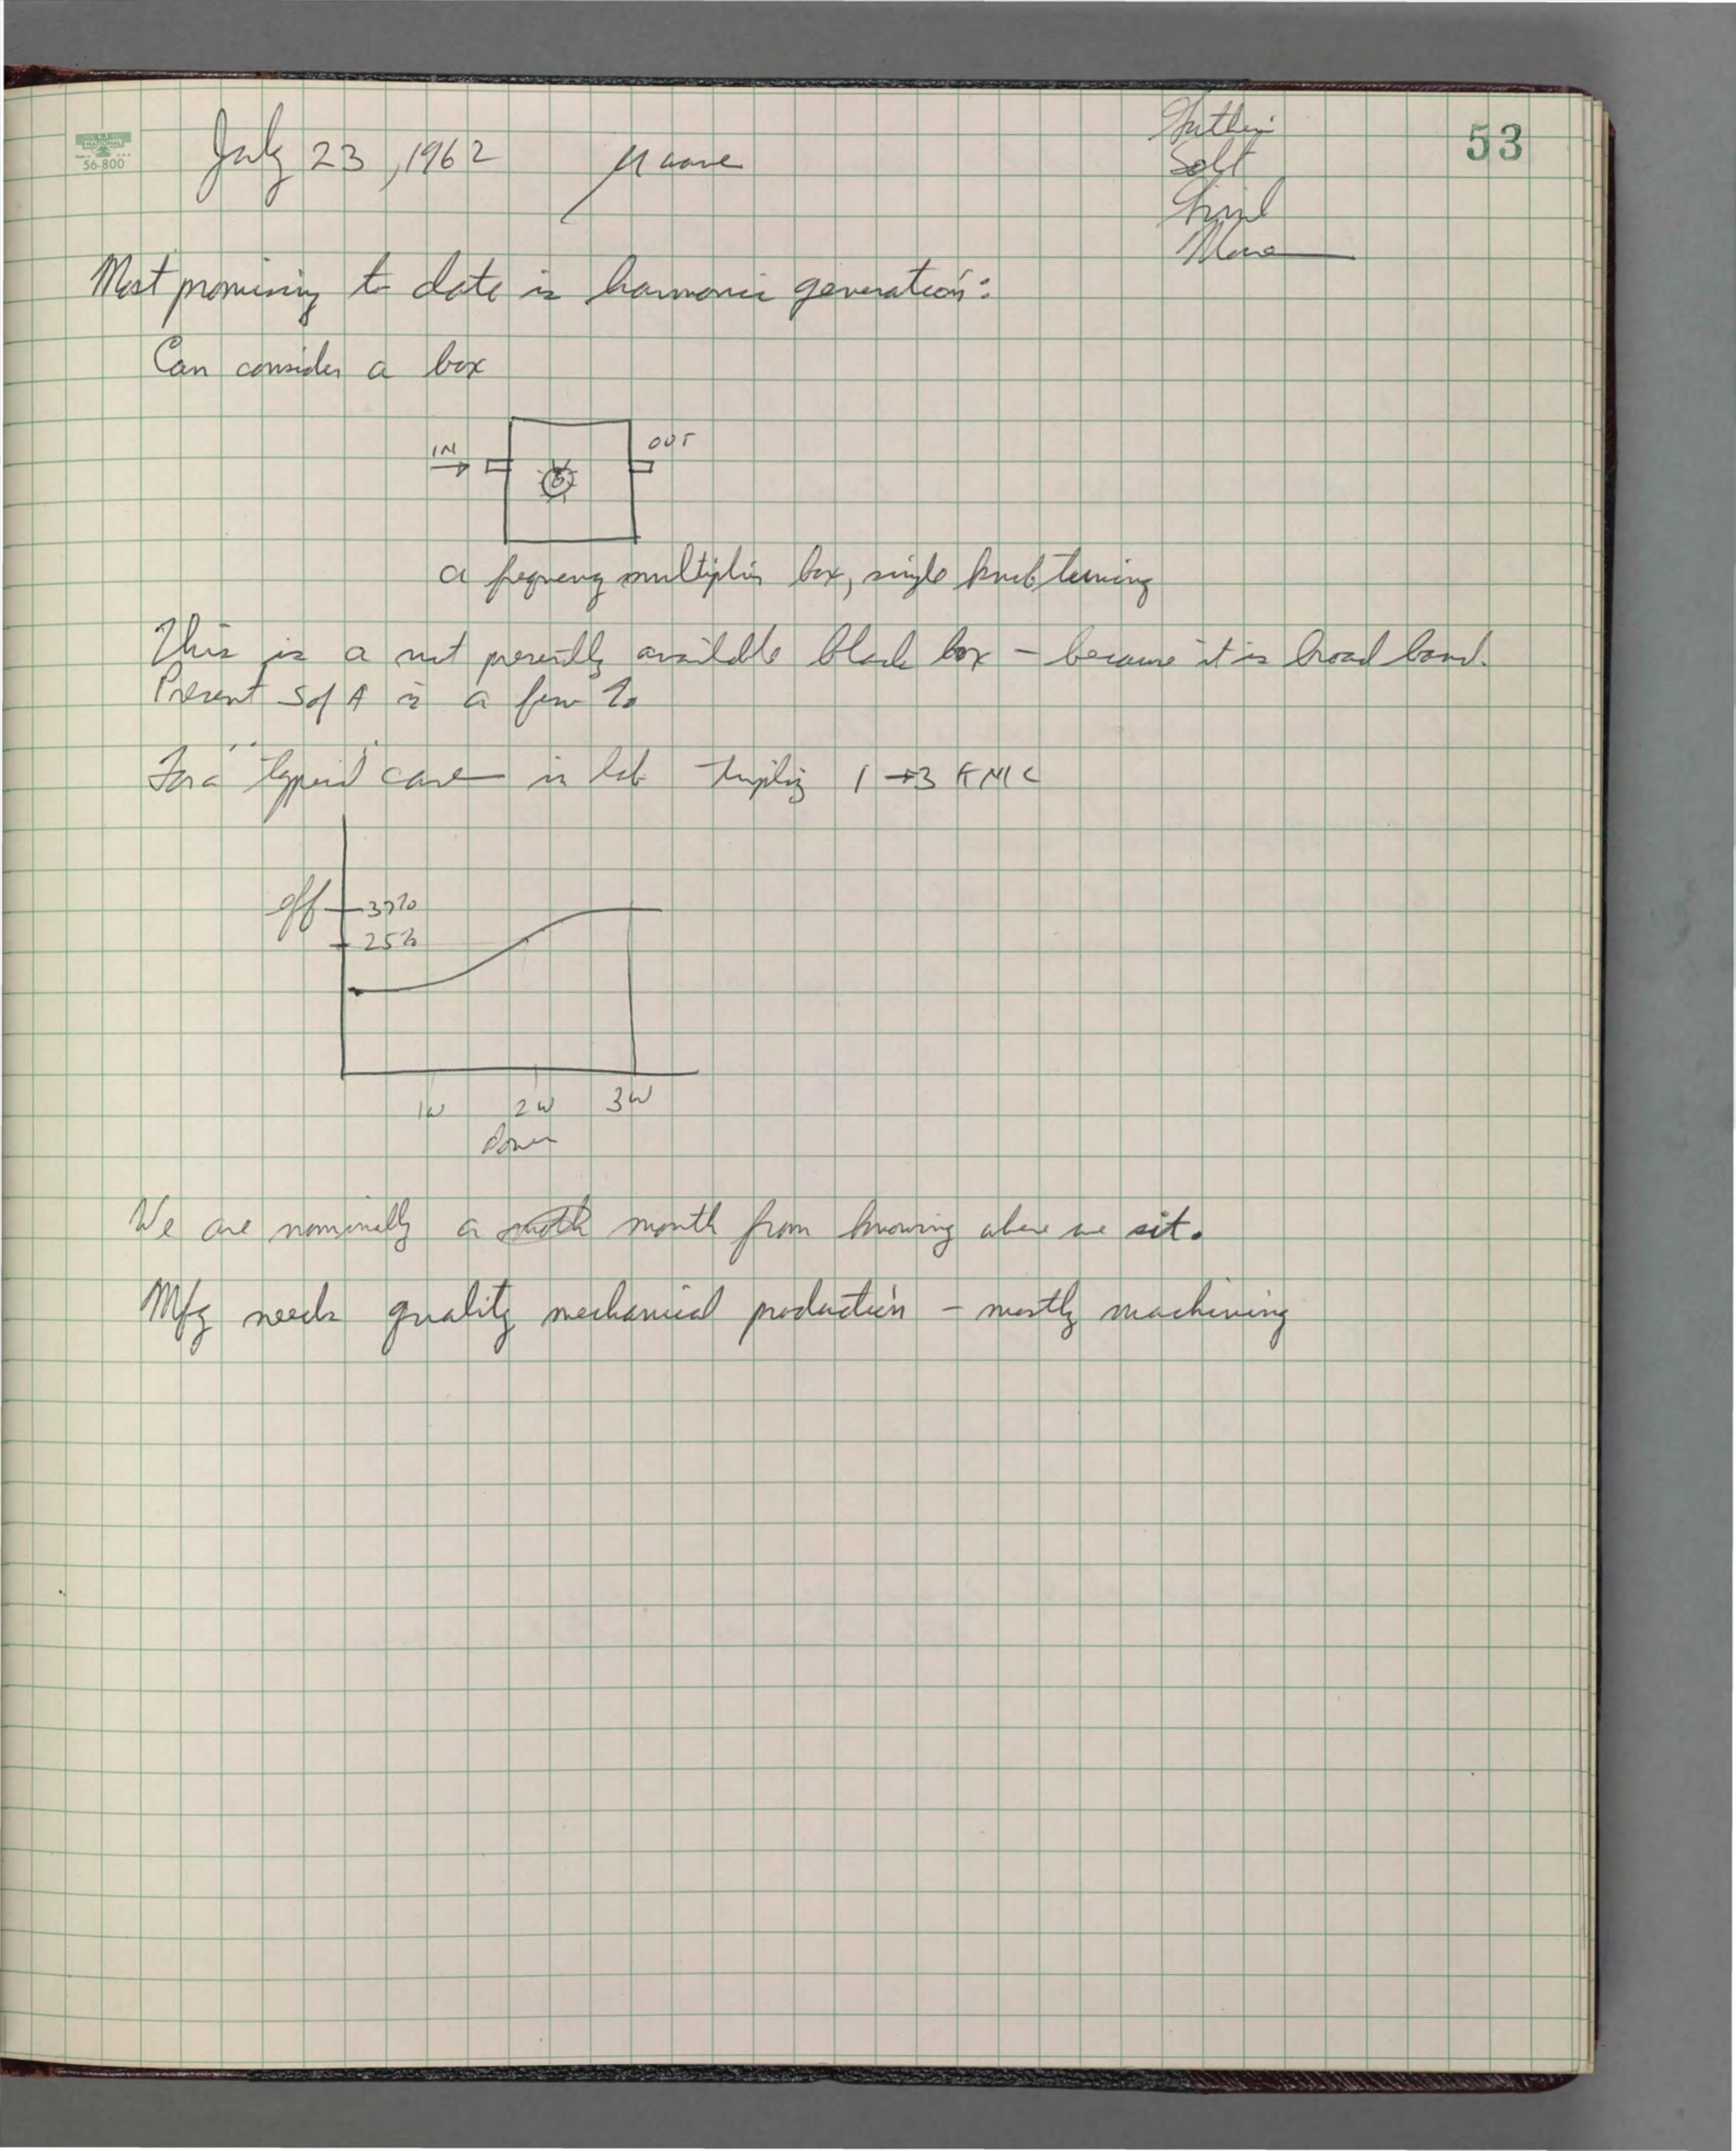 NATIONAL
56-800
July 23, 1962 μ wave
Solt
Moore
53
Most promising to date is harmonic generation:
Can consider a box
IN
OUT
a frequency multiplier box, single knob tuning
This is a not presently available black box - because it is broad band.
Present S of A is a few %
For a "typical" case in lab tripling 1 → 3 KMC
eff
25%
1W 2W 3W
Power
We are nominally a month from knowing where we sit.
Mfg needs quality mechanical production - mostly machining